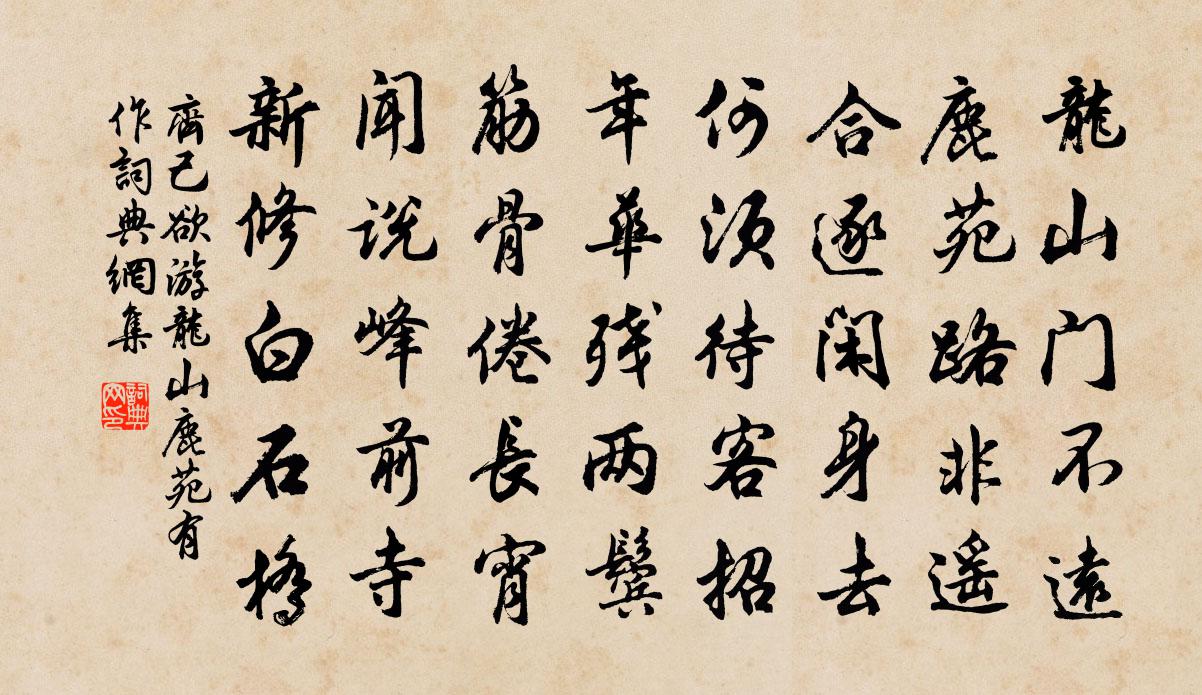 龍山門不遠
鹿苑路非遥
合逐閑身去
何須待客招
年華殘兩鬢
筋骨倦長宵
聞説峰前寺
新修白石橋
齊己欲游龍山鹿苑有
作詞典網集
詞典網印